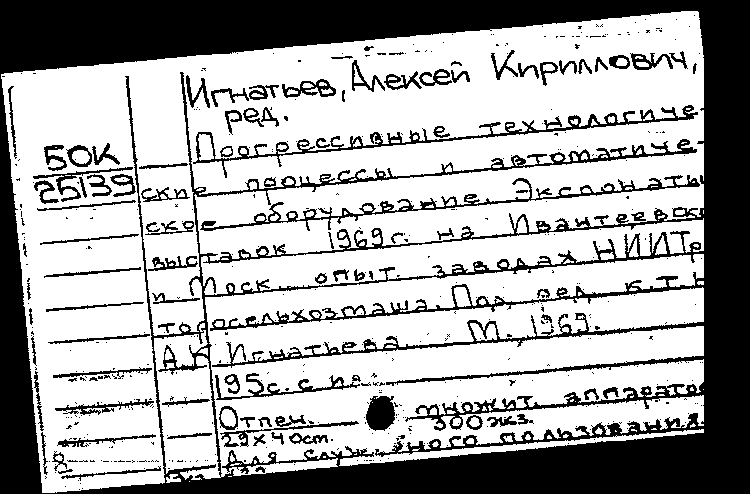 Игнатьев, Алексей Кириллович,
ред.
БОК
25139
Прогрессивные технологиче-
ские процессы и автоматиче-
ское оборудование. Экспонаты
выставок 1969г. на Ивантеевск
и Моск. опыт. заводах НИИТр
торосельхозмаша. Под ред. к.т.н
А.К. Игнатьева. М., 1969.
195с. с ил.
Отпеч. множит. аппарато
29х40см. 300 экз.
Для служебного пользования.